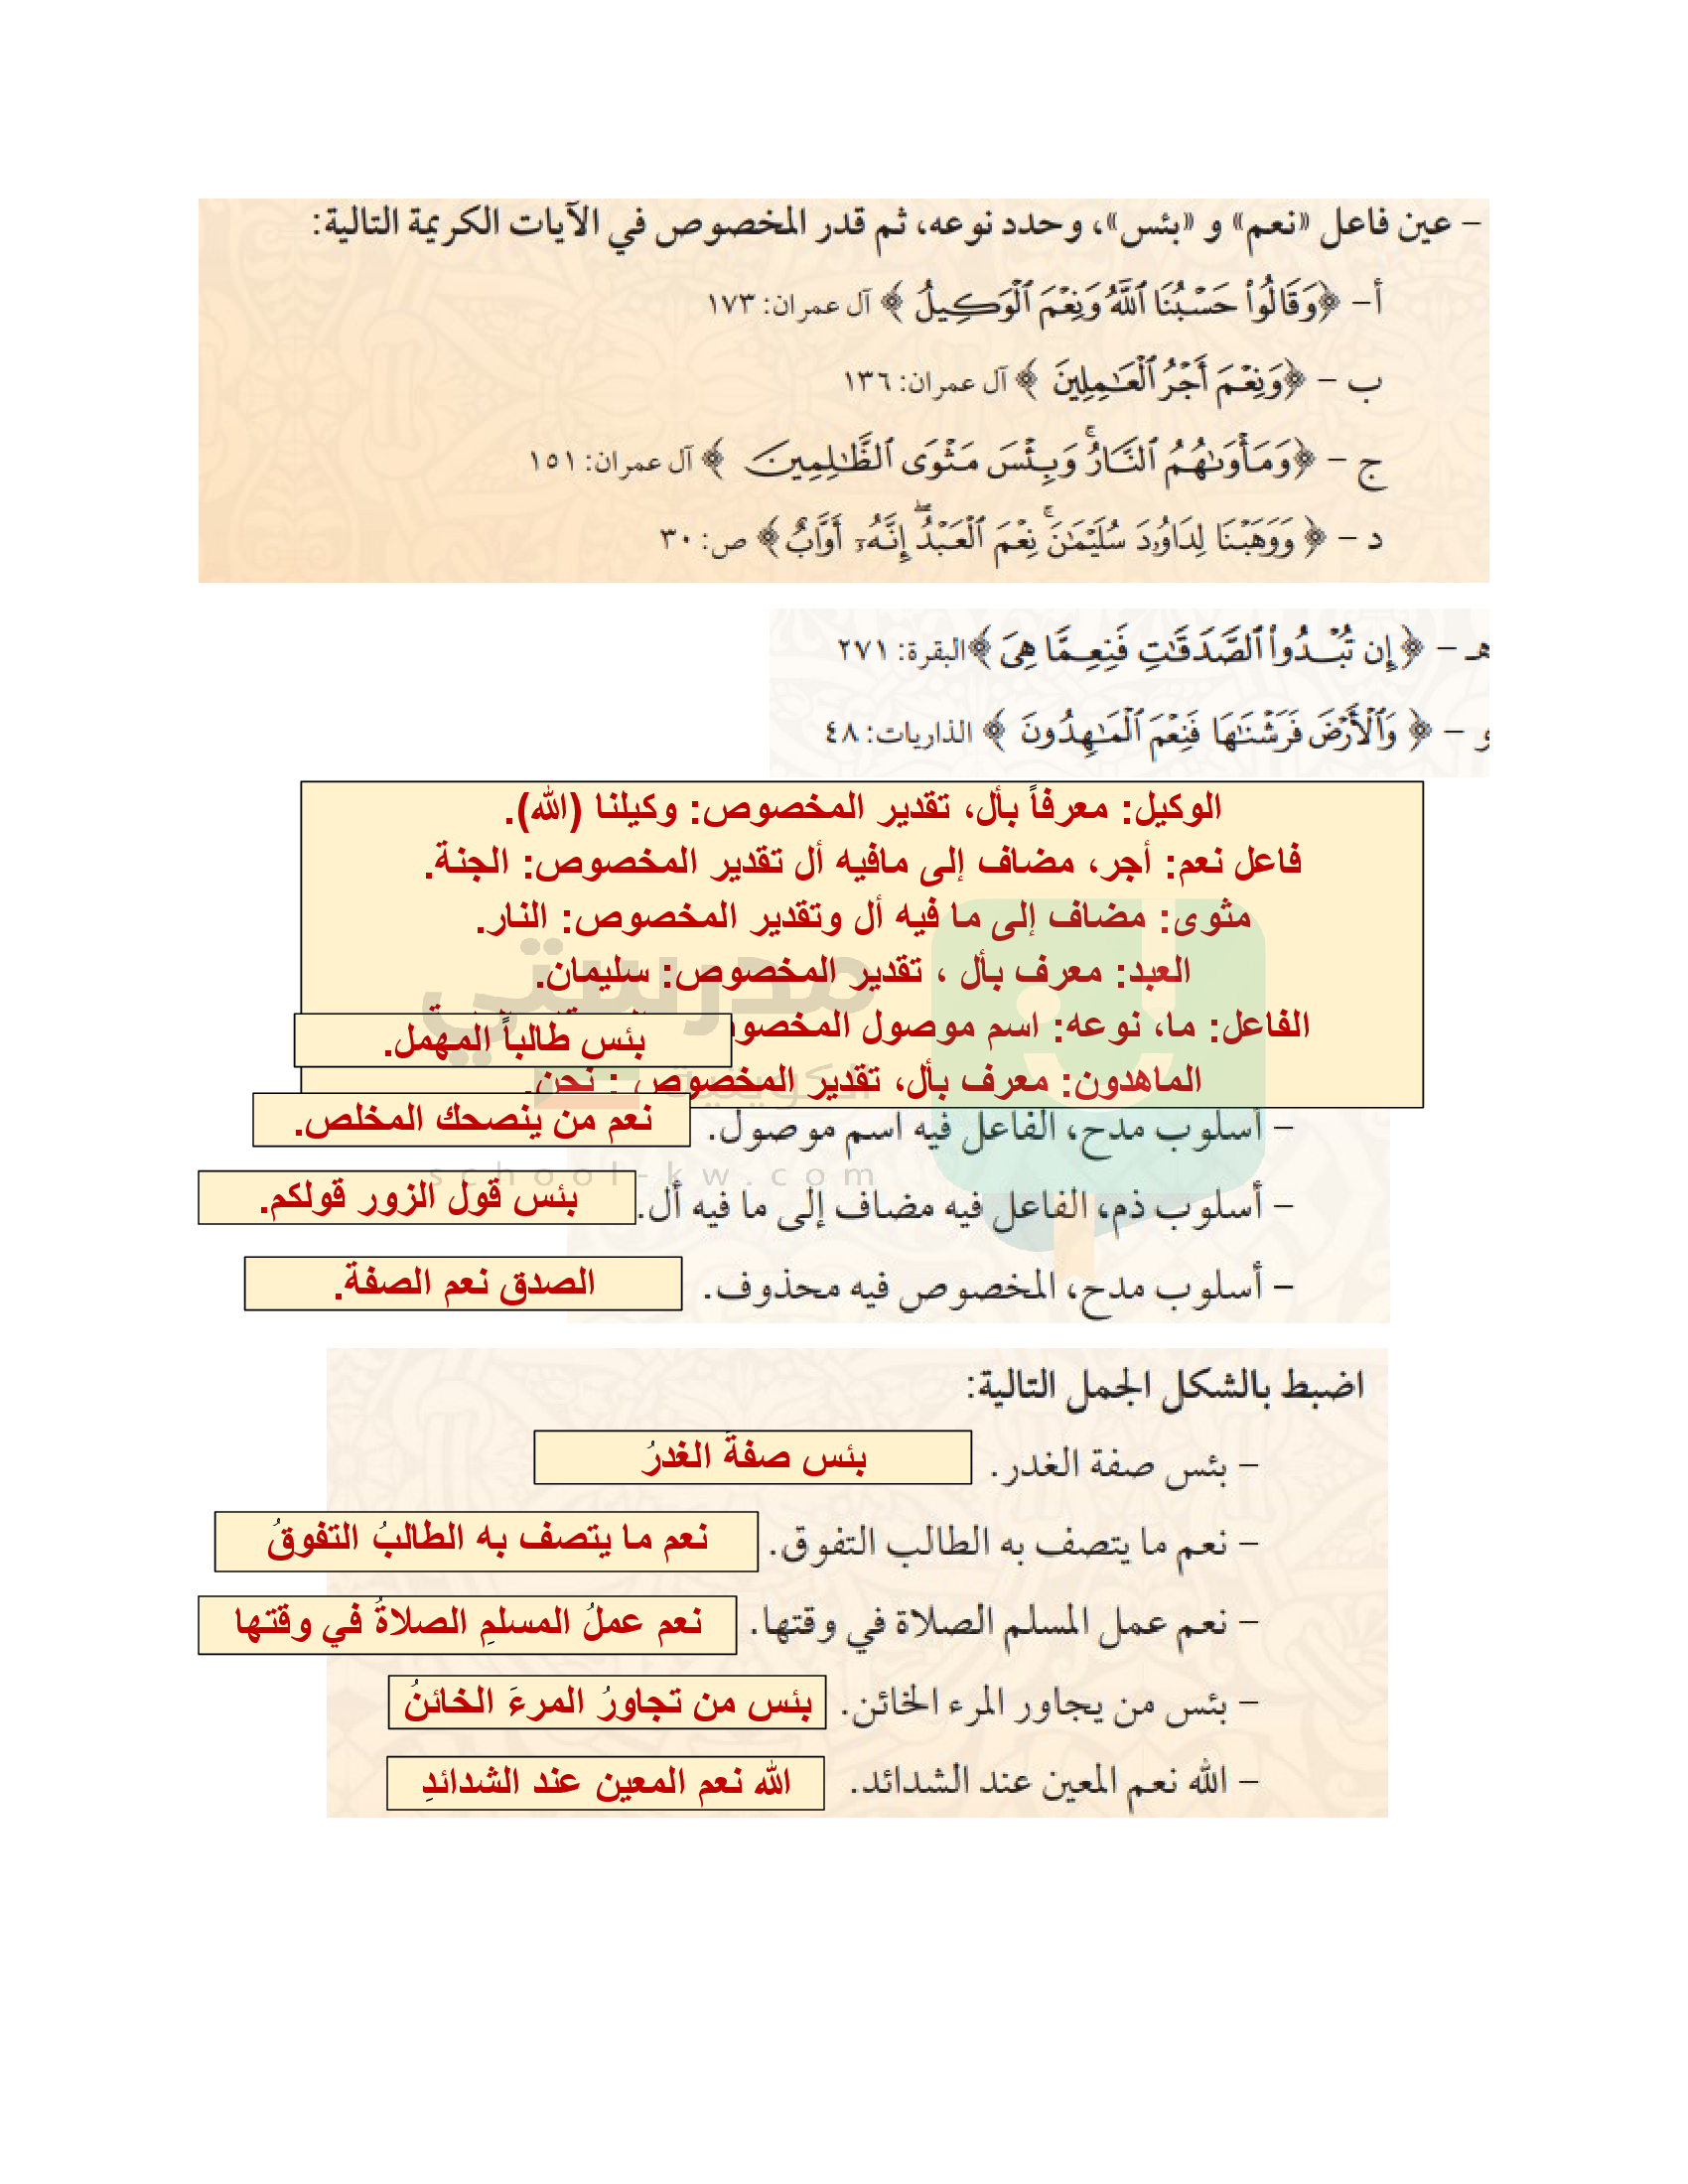 – عين فاعل «نعم» و «بئس»، وحدد نوعه، ثم قدر المخصوص في الآيات الكريمة التالية:
أ– ﴿وَقَالُوا۟ حَسْبُنَا ٱللَّهُ وَنِعْمَ ٱلْوَكِيلُ﴾ آل عمران: ١٧٣
ب – ﴿وَنِعْمَ أَجْرُ ٱلْعَـٰمِلِينَ﴾ آل عمران: ١٣٦
ج – ﴿وَمَأْوَىٰهُمُ ٱلنَّارُ ۚ وَبِئْسَ مَثْوَى ٱلظَّـٰلِمِينَ﴾ آل عمران: ١٥١
د – ﴿وَوَهَبْنَا لِدَاوُۥدَ سُلَيْمَـٰنَ ۚ نِعْمَ ٱلْعَبْدُ ۖ إِنَّهُۥٓ أَوَّابٌ﴾ ص: ٣٠
هـ – ﴿إِن تُبْدُوا۟ ٱلصَّدَقَـٰتِ فَنِعِمَّا هِىَ﴾ البقرة: ٢٧١
و – ﴿وَٱلْأَرْضَ فَرَشْنَـٰهَا فَنِعْمَ ٱلْمَـٰهِدُونَ﴾ الذاريات: ٤٨
الوكيل: معرفاً بأل، تقدير المخصوص: وكيلنا (الله).
فاعل نعم: أجر، مضاف إلى مافيه أل تقدير المخصوص: الجنة.
مثوى: مضاف إلى ما فيه أل وتقدير المخصوص: النار.
العبد: معرف بأل ، تقدير المخصوص: سليمان.
الفاعل: ما، نوعه: اسم موصول
بئس طالباً المهمل.
الماهدون: معرف بأل، تقدير المخصوص : نحن.
– أسلوب مدح، الفاعل فيه اسم موصول. نعم من ينصحك المخلص.
– أسلوب ذم، الفاعل فيه مضاف إلى ما فيه أل. بئس قول الزور قولكم.
– أسلوب مدح، المخصوص فيه محذوف. الصدق نعم الصفة.
مدرستي
الكويتية
school-kw.com
اضبط بالشكل الجمل التالية:
– بئس صفة الغدر. بئس صفةَ الغدرُ
– نعم ما يتصف به الطالب التفوق. نعم ما يتصف به الطالبُ التفوقُ
– نعم عمل المسلم الصلاة في وقتها. نعم عملُ المسلمِ الصلاةُ في وقتها
– بئس من يجاور المرء الخائن. بئس من تجاورُ المرءَ الخائنُ
– الله نعم المعين عند الشدائد. الله نعم المعين عند الشدائدِ